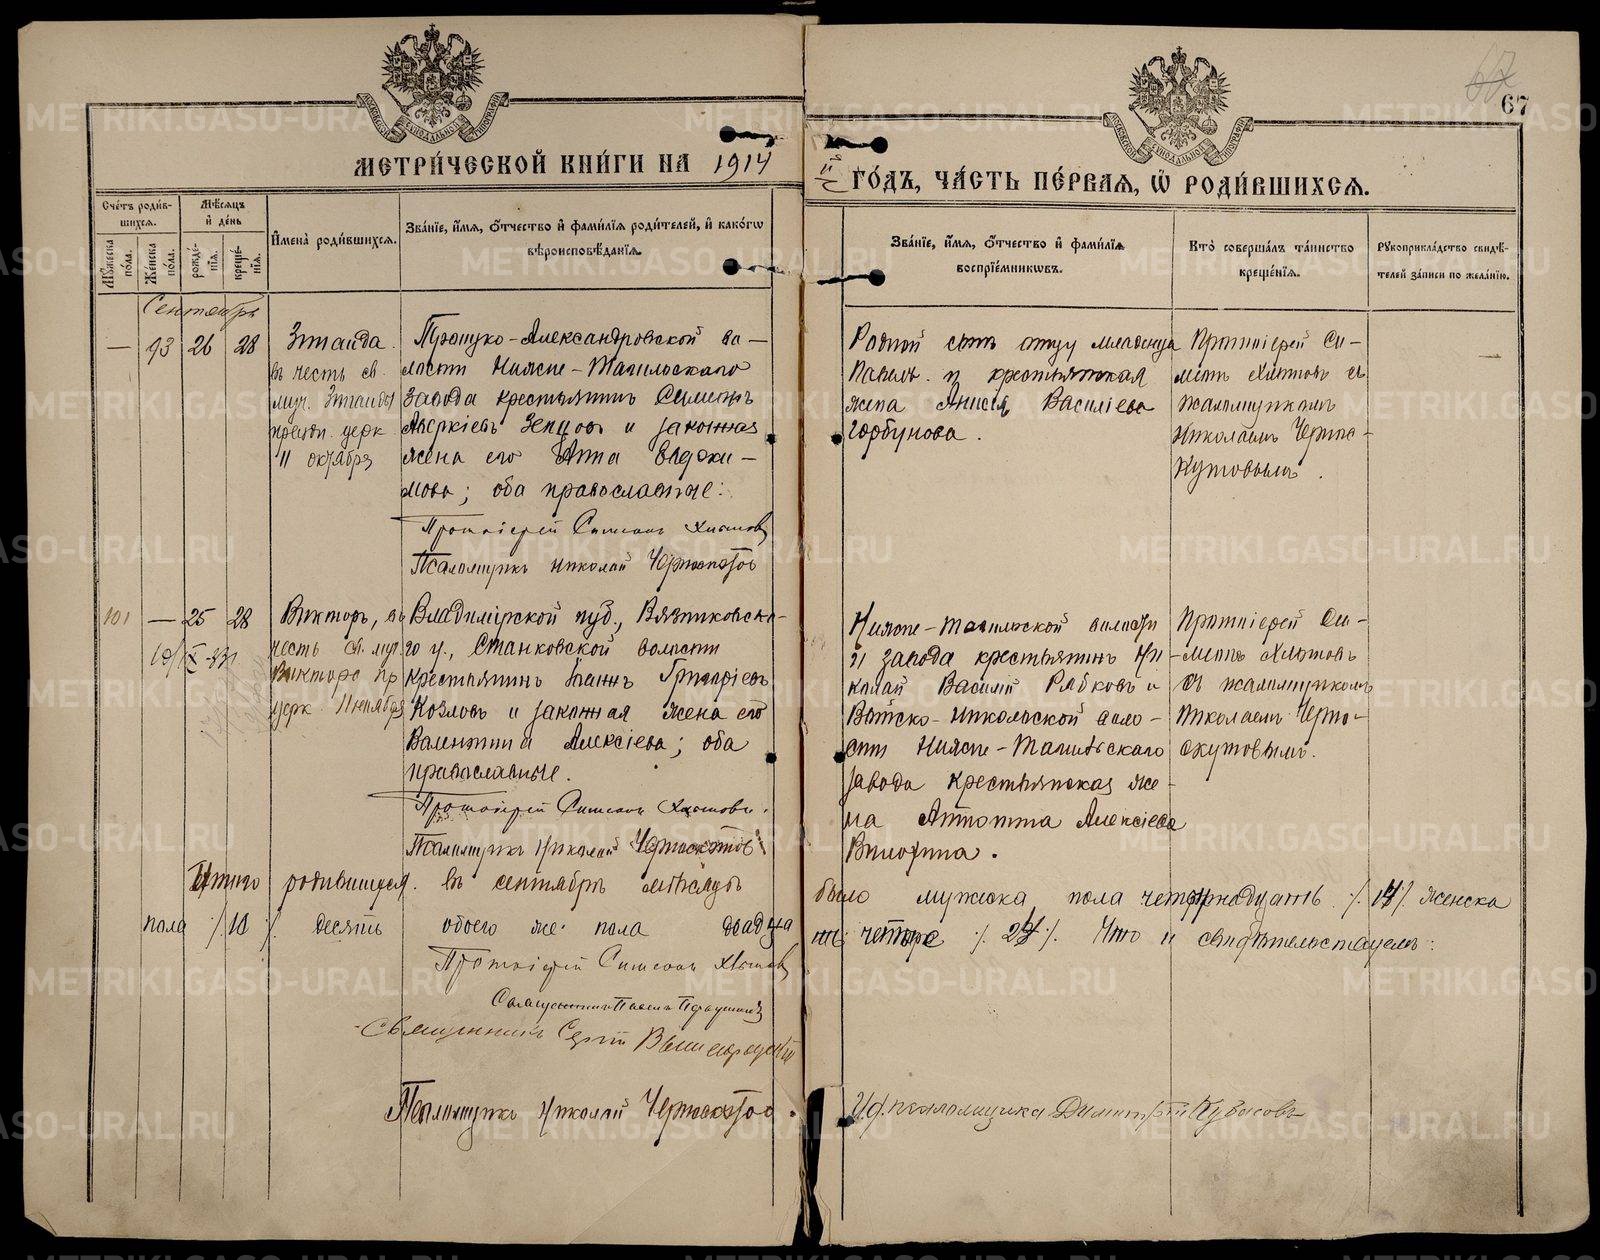 67
67
МЕТРИ́ЧЕСКОЙ КНИ́ГИ НА 1914
й ГО́ДЪ, ЧА́СТЬ ПЕ́РВАЯ, Ѽ РОДИ́ВШИХСЯ.
Сче́тъ роди́вшихся.
Му́жеска по́ла.
Же́нска по́ла.
Мѣ́сяцъ и҆ де́нь
рожде́нїя.
креще́нїя.
И҆мена̀ роди́вшихся.
Зва́нїе, и҆́мя, ѻ҆́тчество и҆ фами́лїя роди́телей, и҆ како́гѡ
вѣроисповѣ́данїя.
Зва́нїе, и҆́мя, ѻ҆́тчество и҆ фами́лїя
воспрїе́мникѡвъ.
Кто̀ соверша́лъ та́инство
креще́нїя.
Рꙋкоприкла́дство свидѣ́-
телей за́писи по жела́нїю.
Сентябрь
— 93 26 28
Зинаида
въ честь св.
муч. Зинаиды
праздн. церк
11 октября
Троицко-Александровской во-
лости Нижне-Тагильскаго
завода крестьянинъ Симеонъ
Аверкіевъ Зенцовъ и законная
жена его Анна Евдоки-
мова; оба православные.
Протоіерей Симеонъ Хлыновъ
Псаломщикъ Николай Черноскутовъ
Родной отца младенца
и крестьянская
жена Анисія Василіева
Горбунова.
Протоіерей Си-
меонъ Хлыновъ съ
псаломщикомъ
Николаемъ Чернос-
кутовымъ.
101 — 25 28
Викторъ, въ
честь св. муч.
Виктора пр
церк 11 ноября
Владимірской губ., Вязниковска-
го у., Станковской волости
крестьянинъ Іоаннъ Григоріевъ
Козловъ и законная жена его
Валентина Алексіева; оба
православные.
Протоіерей Симеонъ Хлыновъ.
Псаломщикъ Николай Черноскутовъ
Нижне-Тагильской волости
и завода крестьянинъ Ни-
колай Василій Рябковъ и
Выйско-Никольской воло-
сти Нижне-Тагильскаго
завода крестьянская же-
на Антонина Алексіева
Вилохина.
Протоіерей Си-
меонъ Хлыновъ
съ псаломщикомъ
Николаемъ Черно-
скутовымъ.
Итого родившихся въ сентябрѣ мѣсяцѣ было мужска пола четырнадцать ./. 14 ./. женска
пола ./. 10 ./. десять обоего же пола двадцать четыре ./. 24 ./. Что и свидѣтельствуемъ:
Протоіерей Симеонъ Хлыновъ
Священникъ Павелъ
Священникъ Сергій
Псаломщикъ Николай Черноскутовъ.
И.д. псаломщика Димитрій Кувасовъ
METRIKI.GASO-URAL.RU